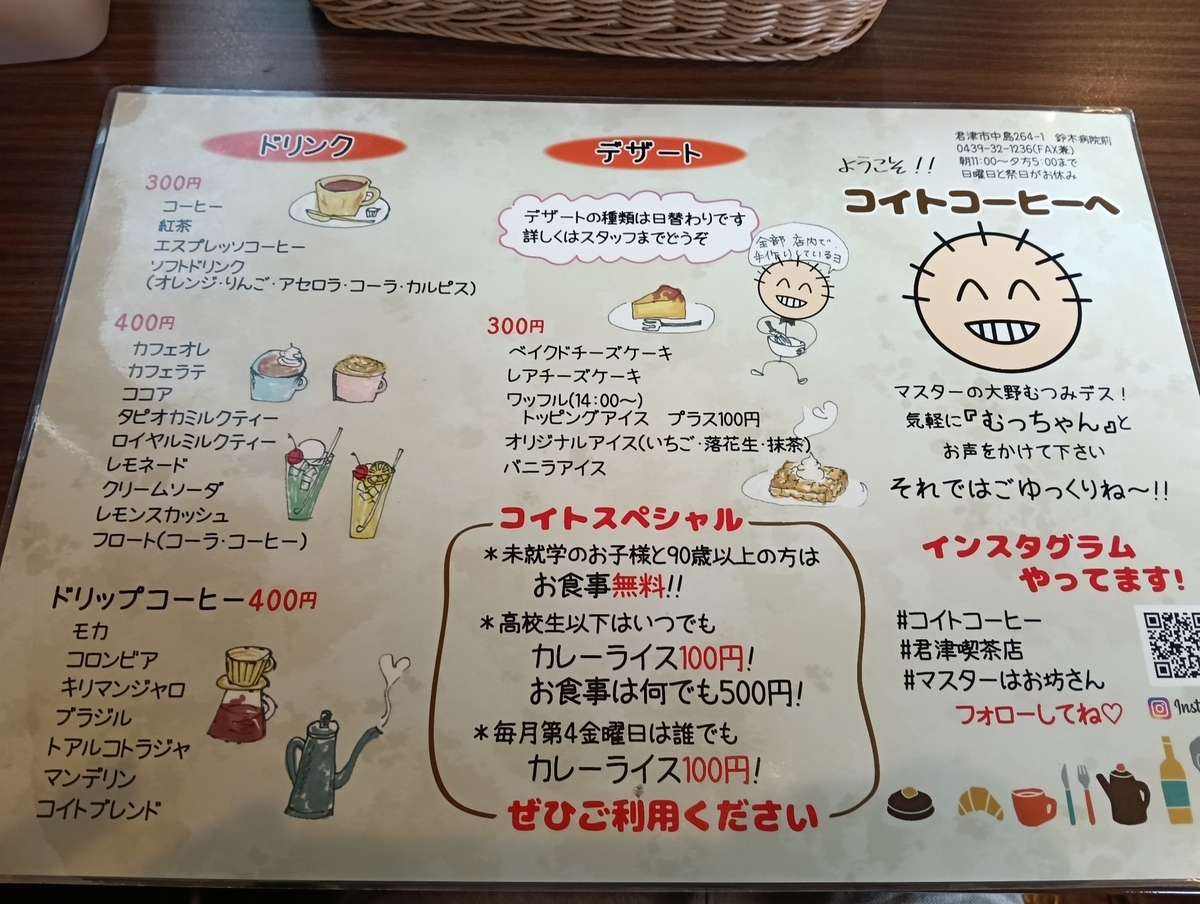 ドリンク
300円
コーヒー
紅茶
エスプレッソコーヒー
ソフトドリンク
(オレンジ・りんご・アセロラ・コーラ・カルピス)
400円
カフェオレ
カフェラテ
ココア
タピオカミルクティー
ロイヤルミルクティー
レモネード
クリームソーダ
レモンスカッシュ
フロート(コーラ・コーヒー)
ドリップコーヒー400円
モカ
コロンビア
キリマンジャロ
ブラジル
トアルコトラジャ
マンデリン
コイトブレンド
デザート
デザートの種類は日替わりです
詳しくはスタッフまでどうぞ
全部 店内で
手作りしているヨ
300円
ベイクドチーズケーキ
レアチーズケーキ
ワッフル(14:00～)
トッピングアイス プラス100円
オリジナルアイス(いちご・落花生・抹茶)
バニラアイス
コイトスペシャル
＊未就学のお子様と90歳以上の方は
お食事無料!!
＊高校生以下はいつでも
カレーライス100円!
お食事は何でも500円!
＊毎月第4金曜日は誰でも
カレーライス100円!
ぜひご利用ください
君津市中島264-1 鈴木病院前
0439-32-1236(FAX兼)
朝11:00～夕方5:00まで
日曜日と祭日がお休み
ようこそ!!
コイトコーヒーへ
マスターの大野むつみデス!
気軽に『むっちゃん』と
お声をかけて下さい
それではごゆっくりね～!!
インスタグラム
やってます!
#コイトコーヒー
#君津喫茶店
#マスターはお坊さん
フォローしてね♡